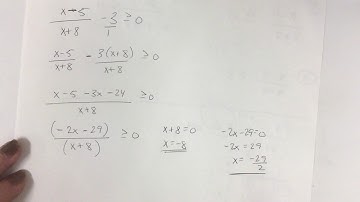 (x-5)/(x+8) - 3/1 ≥0
(x-5)/(x+8) - 3(x+8)/(x+8) ≥0
(x-5-3x-24)/(x+8) ≥0
(-2x-29)/(x+8) ≥0
x+8=0
x=-8
-2x-29=0
-2x=29
x=-29/2